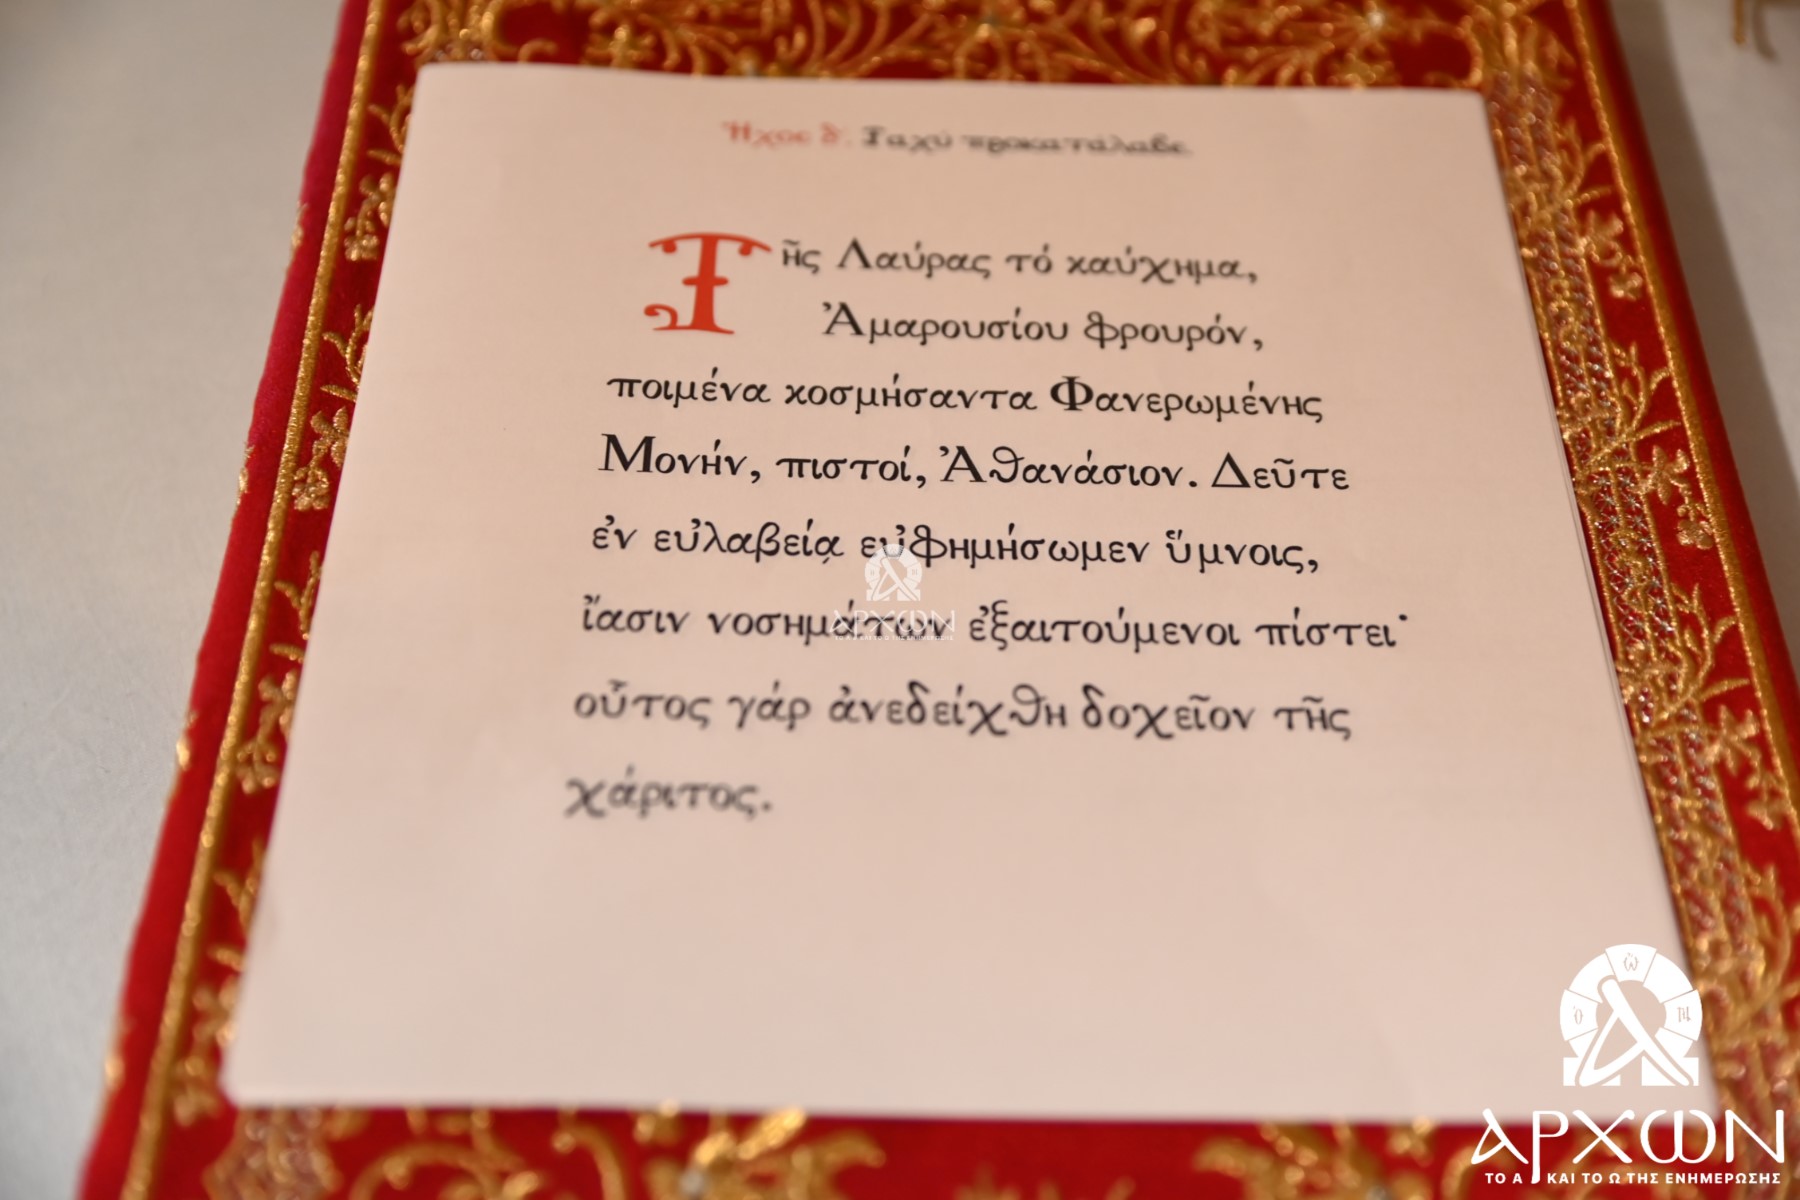 Ἦχος δ΄. Ταχύ προκατάλαβε.
Τῆς Λαύρας τό καύχημα,
Ἀμαρουσίου φρουρόν,
ποιμένα κοσμήσαντα Φανερωμένης
Μονήν, πιστοί, Ἀθανάσιον. Δεῦτε
ἐν εὐλαβείᾳ εὐφημήσωμεν ὕμνοις,
ἴασιν νοσημάτων ἐξαιτούμενοι πίστει·
οὗτος γάρ ἀνεδείχθη δοχεῖον τῆς
χάριτος.
ΑΡΧΩΝ
ΤΟ Α ΚΑΙ ΤΟ Ω ΤΗΣ ΕΝΗΜΕΡΩΣΗΣ
ΑΡΧΩΝ
ΤΟ Α ΚΑΙ ΤΟ Ω ΤΗΣ ΕΝΗΜΕΡΩΣΗΣ